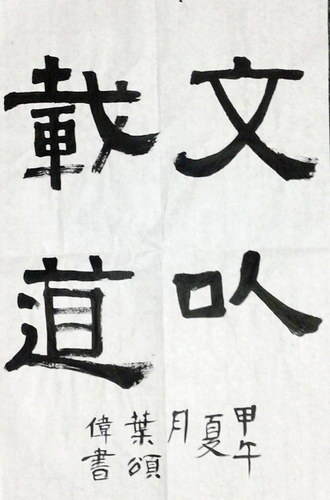 文以
載道
甲午
夏
月
葉頌
偉書